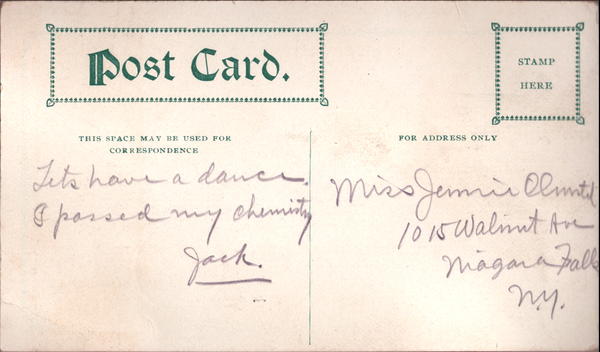 Post Card.
STAMP
HERE
THIS SPACE MAY BE USED FOR
CORRESPONDENCE
FOR ADDRESS ONLY
Lets have a dance.
I passed my chemisty
Jack.
Miss Jennie Olmsted
1015 Walnut Ave
Niagara Falls
N.Y.